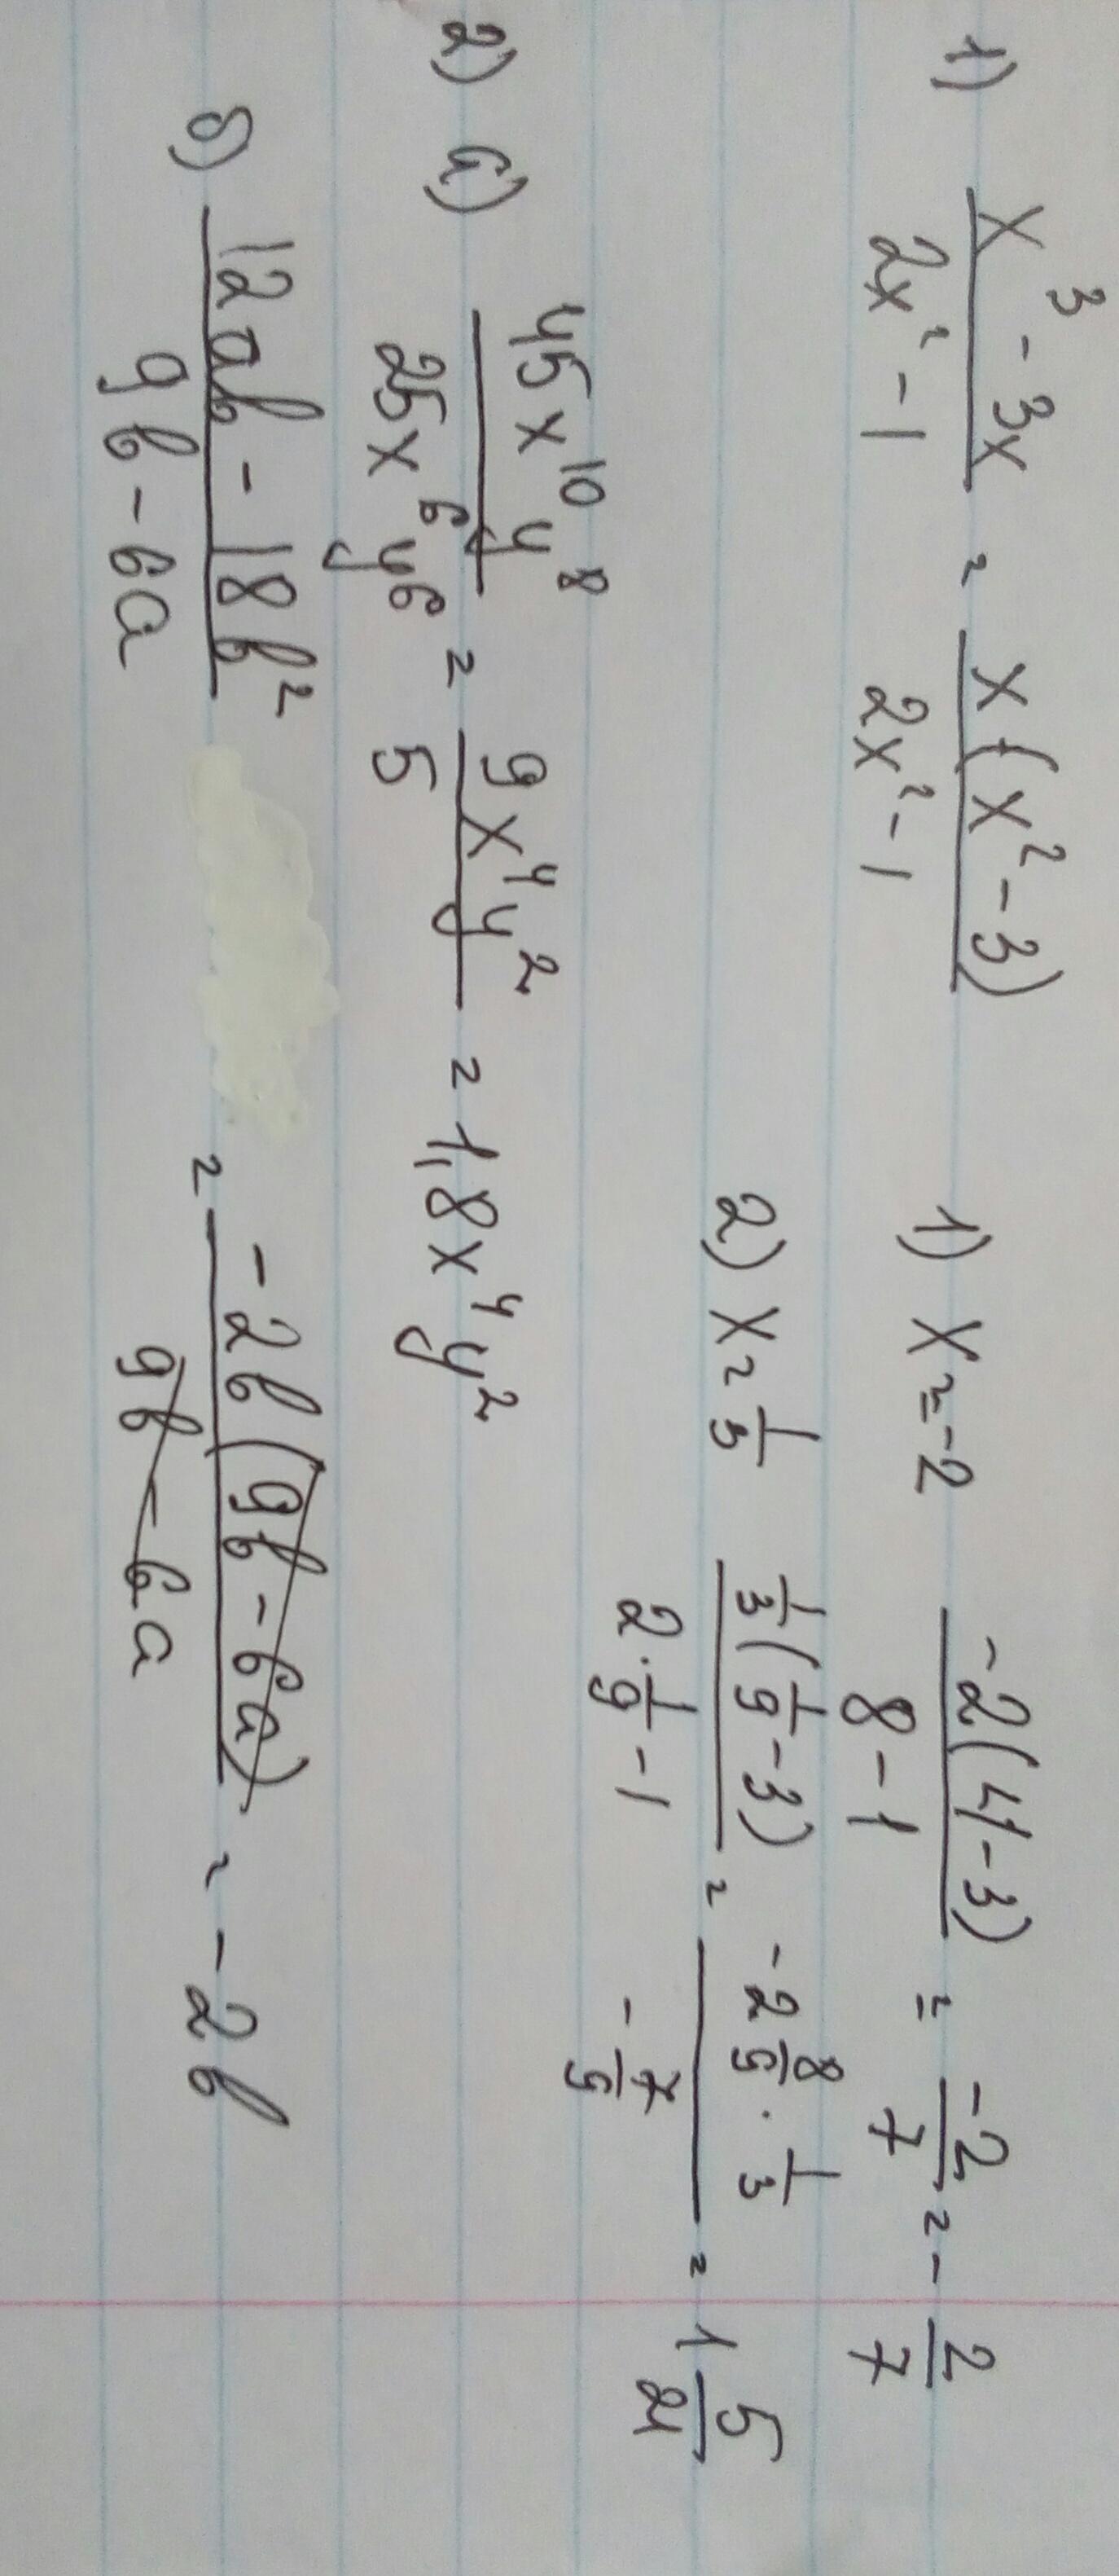 1) (x³ - 3x)/(2x² - 1) = x(x² - 3)/(2x² - 1)
1) x = -2 -2(4 - 3)/(8 - 1) = -2/7 = -2/7
2) x = 1/3 (1/3(1/9 - 3))/(2 · 1/9 - 1) = (-2 8/9 · 1/3)/(-7/9) = 1 5/21
2) а) 45x¹⁰y⁸/25x⁶y⁶ = 9x⁴y²/5 = 1,8x⁴y²
б) (12ab - 18b²)/(9b - 6a) = -2b(9b - 6a)/(9b - 6a) = -2b